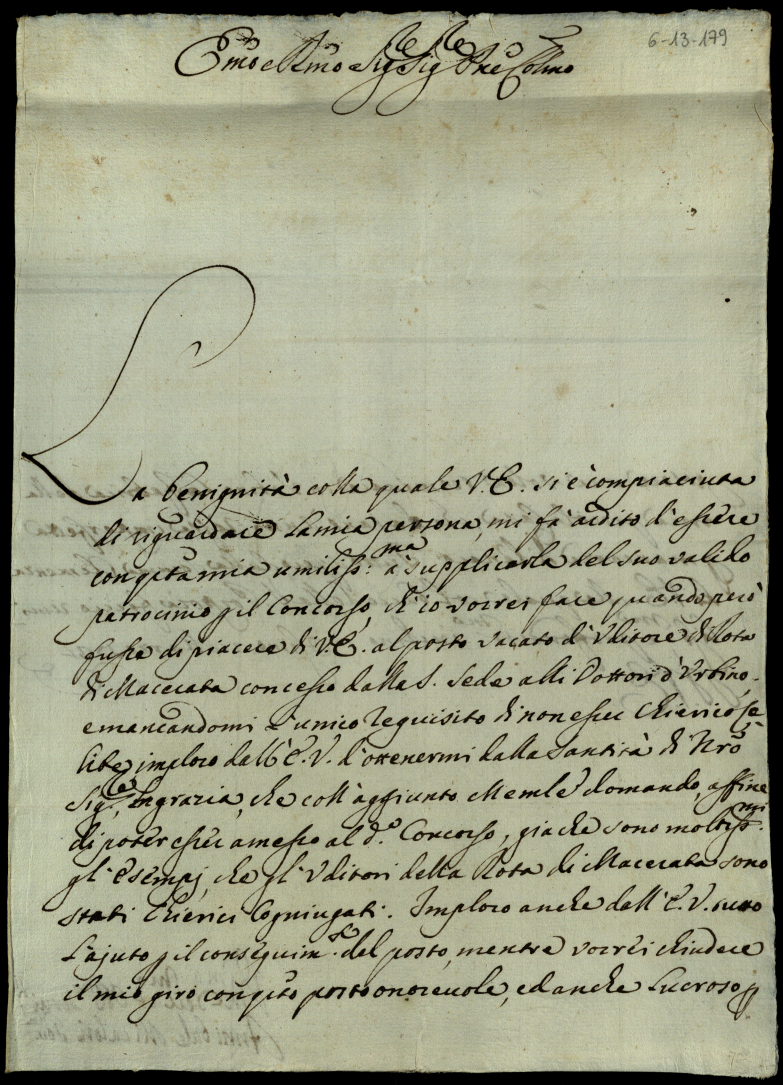 6-13-179
Emo e Rmo Sigre Sigre Pne Colmo
La benignità colla quale V.E. si è compiaciuta
di riguardare la mia persona, mi fà ardito d'essere
con qta mia umilissma: à supplicarla del suo valido
patrocinio p il Concorso, ch'io vorrei fare, quando però
fusse di piacere di V.E. al posto vacato d'Uditore di Rota
di Macerata concesso dalla S. Sede alli Dottori d'Urbino,
e mancandomi l'unico requisito di non esser Chierico Ce-
libe, imploro dall'E.V. l'ottenermi dalla Santità di Nrô
Sigre, la grazia, che coll'aggiunto Memle domando, affine
di poter esser amesso al do. Concorso, giache sono moltissmi:
gl'Esempj, che gl'Uditori della Rota di Macerata sono
stati Chierici Cogniugati. Imploro anche dall'E.V. tutto
l'ajuto p il conseguimto. del posto, mentre vorrei chiudere
il mio giro con qto posto onorevole, ed anche lucroso p